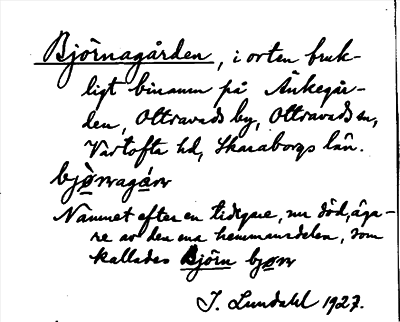 Björnagården, i orten bruk-
ligt binamn på Änkegår-
den, Ottravads by, Ottravads sn,
Vartofta hd, Skaraborgs län.
bjønagán
Namnet efter en tidigare, nu död, äga-
re av den ena hemmansdelen, som
kallades Björn bjøn
J. Lundahl 1927.